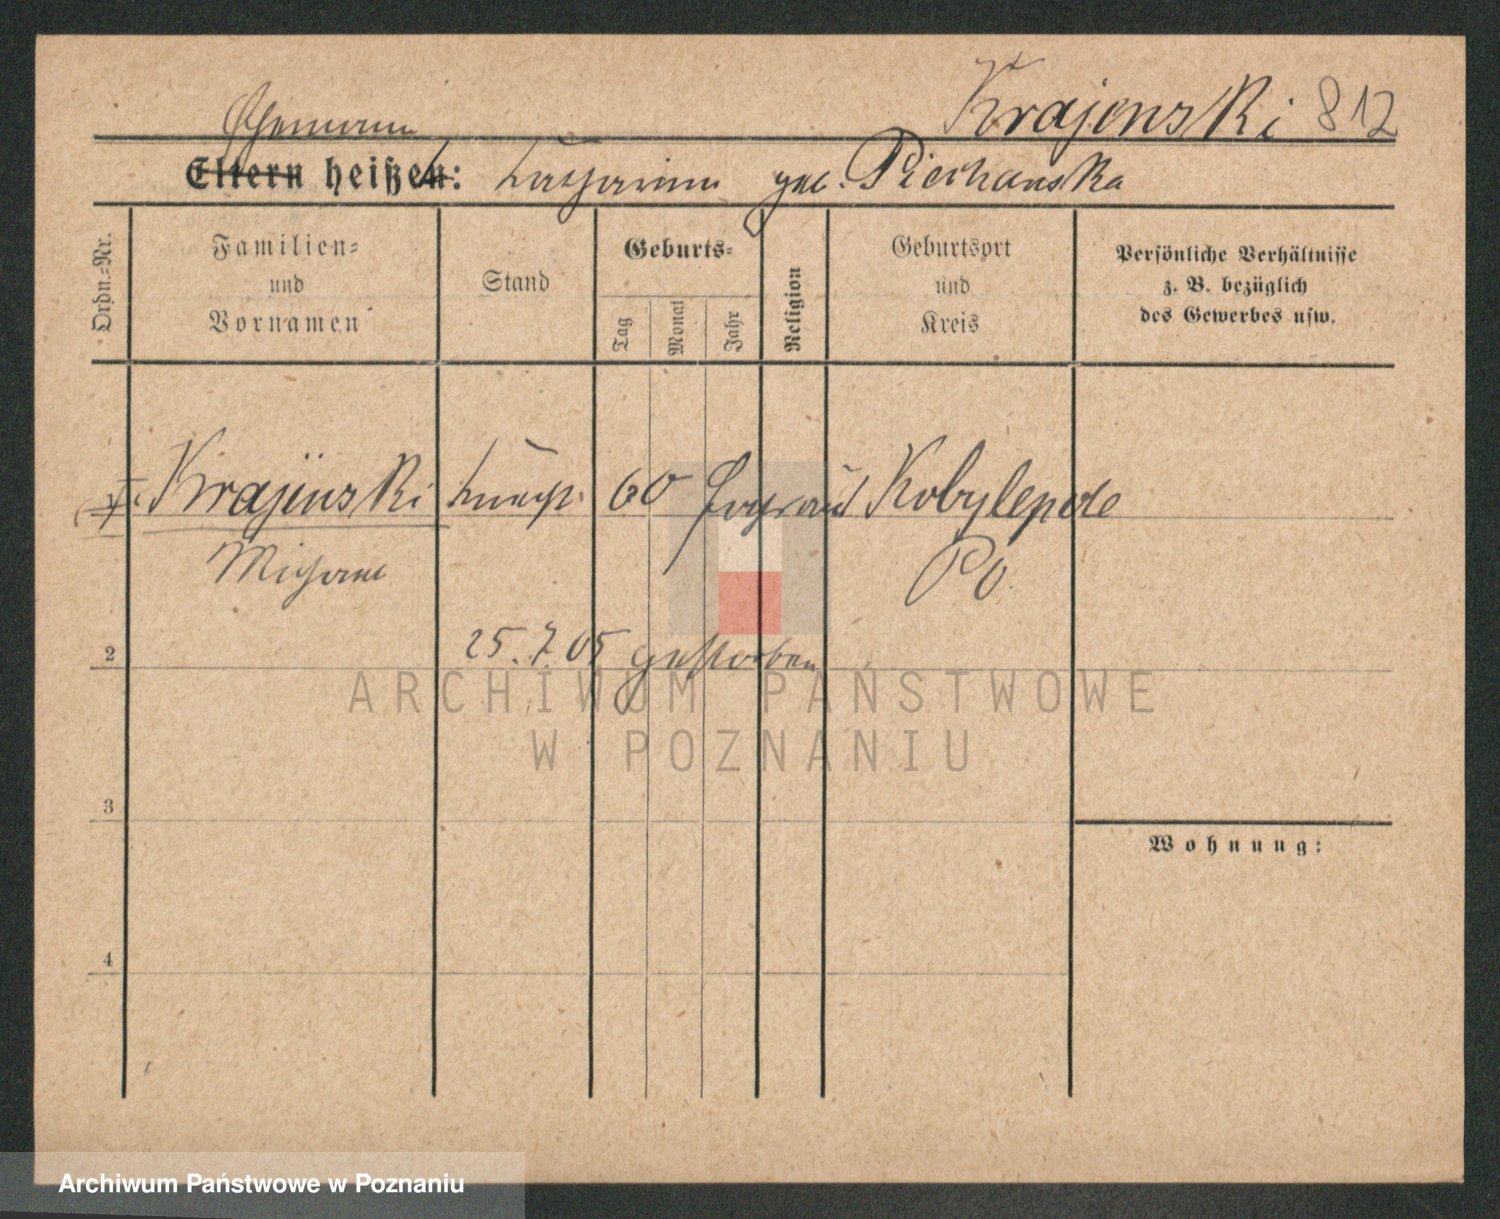 Krajenski 812
Ehemann
Eltern heißen: Katharina geb. Piechanska
Ordn.-Nr.
Familien- und Vornamen
Stand
Geburts-
Tag
Monat
Jahr
Religion
Geburtsort und Kreis
Persönliche Verhältnisse z. B. bezüglich des Gewerbes usw.
Krajenski 60 Kobylepole
Michael Po.
2
25.7.05 gestorben
3
Wohnung:
4
ARCHIWUM PAŃSTWOWE
W POZNANIU
Archiwum Państwowe w Poznaniu